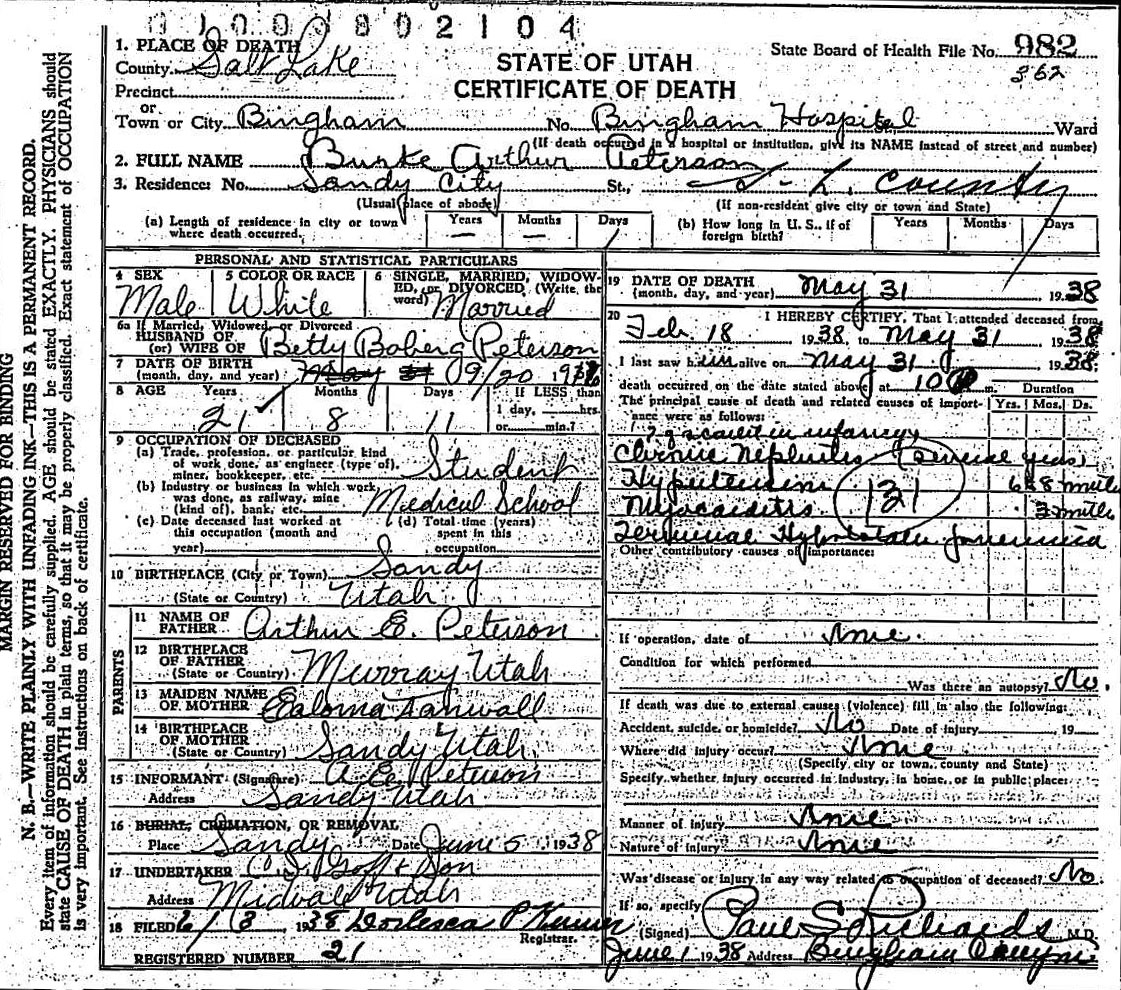 0100802104
1. PLACE OF DEATH
County Salt Lake
Precinct
or
Town or City Bingham No. Bingham Hospital Ward
STATE OF UTAH
CERTIFICATE OF DEATH
State Board of Health File No. 982
362
(If death occurred in a hospital or institution, give its NAME instead of street and number)
2. FULL NAME Burke Arthur Peterson
3. Residence: No. Sandy City St., S-L. County
(Usual place of abode) (If non-resident give city or town and State)
(a) Length of residence in city or town where death occurred. Years — Months — Days 1
(b) How long in U. S., if of foreign birth? Years Months Days
PERSONAL AND STATISTICAL PARTICULARS
4 SEX Male
5 COLOR OR RACE White
6 SINGLE, MARRIED, WIDOWED, or DIVORCED, (Write, the word) Married
6a If Married, Widowed, or Divorced
HUSBAND OF
(or) WIFE OF Betty Boberg Peterson
7 DATE OF BIRTH
(month, day, and year) May 31 09/20 19
8 AGE Years 21 Months 8 Days 11 If LESS than 1 day, hrs. or min.?
9 OCCUPATION OF DECEASED
(a) Trade, profession, or particular kind of work done, as engineer (type of), miner, bookkeeper, etc. Student
(b) Industry or business in which work was done, as railway, mine (kind of), bank, etc. Medical School
(c) Date deceased last worked at this occupation (month and year)
(d) Total time (years) spent in this occupation
10 BIRTHPLACE (City or Town) Sandy
(State or Country) Utah
PARENTS
11 NAME OF FATHER Arthur E. Peterson
12 BIRTHPLACE OF FATHER (State or Country) Murray Utah
13 MAIDEN NAME OF MOTHER
14 BIRTHPLACE OF MOTHER (State or Country) Sandy Utah
15 INFORMANT (Signature) A. E. Peterson
Address Sandy Utah
16 BURIAL, CREMATION, OR REMOVAL
Place Sandy Date June 5 1938
17 UNDERTAKER Goff & Son
Address Midvale Utah
18 FILED 6/3, 1938
Registrar.
REGISTERED NUMBER 21
19 DATE OF DEATH
(month, day, and year) May 31, 1938
20 I HEREBY CERTIFY, That I attended deceased from
Feb. 18 1938, to May 31 1938
I last saw him alive on May 31, 1938
death occurred on the date stated above, at 10 m. Duration
The principal cause of death and related causes of importance were as follows: Yrs. Mos. Ds.
in infancy
Chronic Nephritis several years
Hypertension 6 8 months
Myocarditis 3 months
Terminal Hypostatic Pneumonia
131
Other contributory causes of importance:
If operation, date of None
Condition for which performed
Was there an autopsy? No.
If death was due to external causes (violence) fill in also the following:
Accident, suicide, or homicide? No Date of injury 19
Where did injury occur? None
(Specify city or town, county and State)
Specify whether injury occurred in industry, in home, or in public place:
Manner of injury None
Nature of injury None
Was disease or injury in any way related to occupation of deceased? No
If so, specify
(Signed) Paul S. Richards M.D.
June 1 1938 Address Bingham Canyon
MARGIN RESERVED FOR BINDING
N. B.—WRITE PLAINLY WITH UNFADING INK—THIS IS A PERMANENT RECORD.
Every item of information should be carefully supplied. AGE should be stated EXACTLY. PHYSICIANS should
state CAUSE OF DEATH in plain terms, so that it may be properly classified. Exact statement of OCCUPATION
is very important. See instructions on back of certificate.